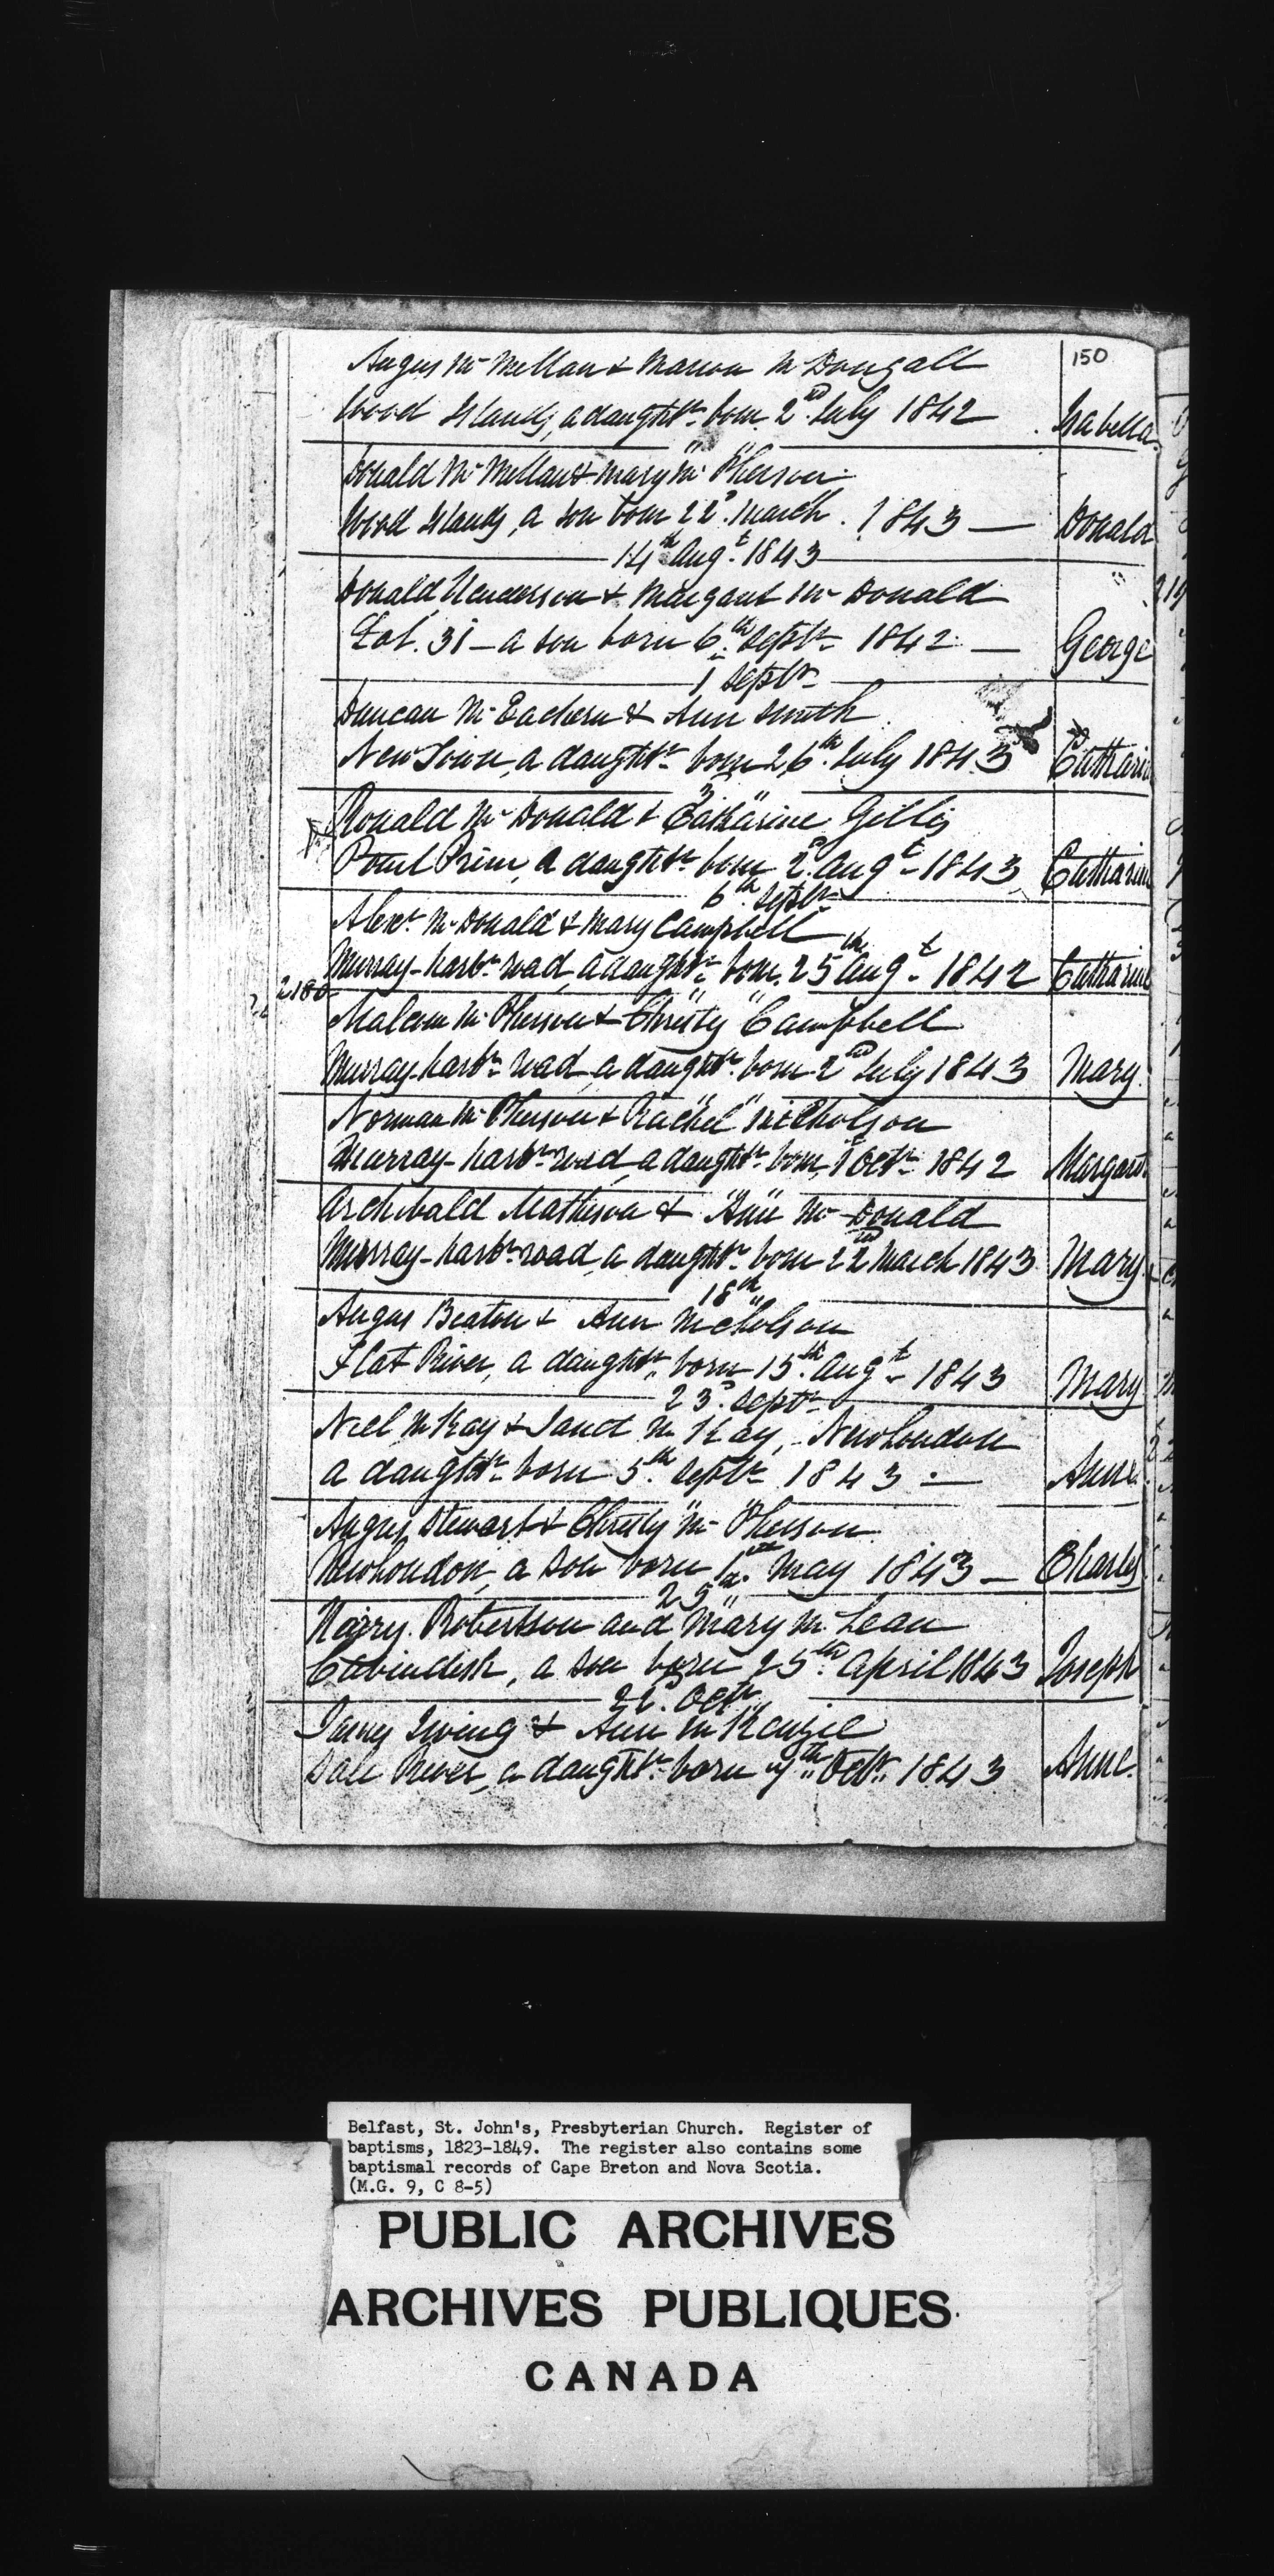 150
Angus Mc Millan & Marion Mc Dougall
Wood Islands, a daughtr. born 2nd July 1842 Isabella
Donald Mc Millan & Mary Mc Pherson
Wood Islands, a son born 22d. March 1843 — Donald
14th Augt. 1843
Donald Henderson & Margaret Mc Donald
Lot. 31 — a son born 6th Septr. 1842 — George
1 Septr.
Duncan Mc Eachern & Ann Smith
New Town, a daughtr. born 26th July 1843 Catharine
Ronald Mc Donald & Catharine Gillis
Point Prim, a daughtr. born 2d. Augt. 1843 Catharine
6th Septr.
Alexr. Mc Donald & Mary Campbell
Murray-harbr. road, a daughtr. born 25th Augt. 1842 Catharine
2180
Malcom Mc Pherson & Christy Campbell
Murray-harbr. road, a daughtr. born 2nd July 1843 Mary
Norman Mc Pherson & Rachel Nicholson
Murray-harbr. road, a daughtr. born 1 Octr. 1842 Margaret
Archibald Matheson & Ann Mc Donald
Murray-harbr. road, a daughtr. born 22nd March 1843 Mary
18th
Angus Beaton & Ann Nicholson
Flat River, a daughtr. born 15th. Augt. 1843 Mary
23d. Septr.
Niel Mc Kay & Janet Mc Kay, New London
a daughtr. born 5th. Septr. 1843 — Anne
Angus Stewart & Christy Mc Pherson
New London, a son born May 1843 — Charles
25th
Harry Robertson and Mary Mc Lean
Cavindish, a son born 25th. April 1843 Joseph
22d. Octr.
James Irving & Ann Mc Kenzie
River, a daughtr. born Octr. 1843 Anne
Belfast, St. John's, Presbyterian Church. Register of
baptisms, 1823-1849. The register also contains some
baptismal records of Cape Breton and Nova Scotia.
(M.G. 9, C 8-5)
PUBLIC ARCHIVES
ARCHIVES PUBLIQUES
CANADA